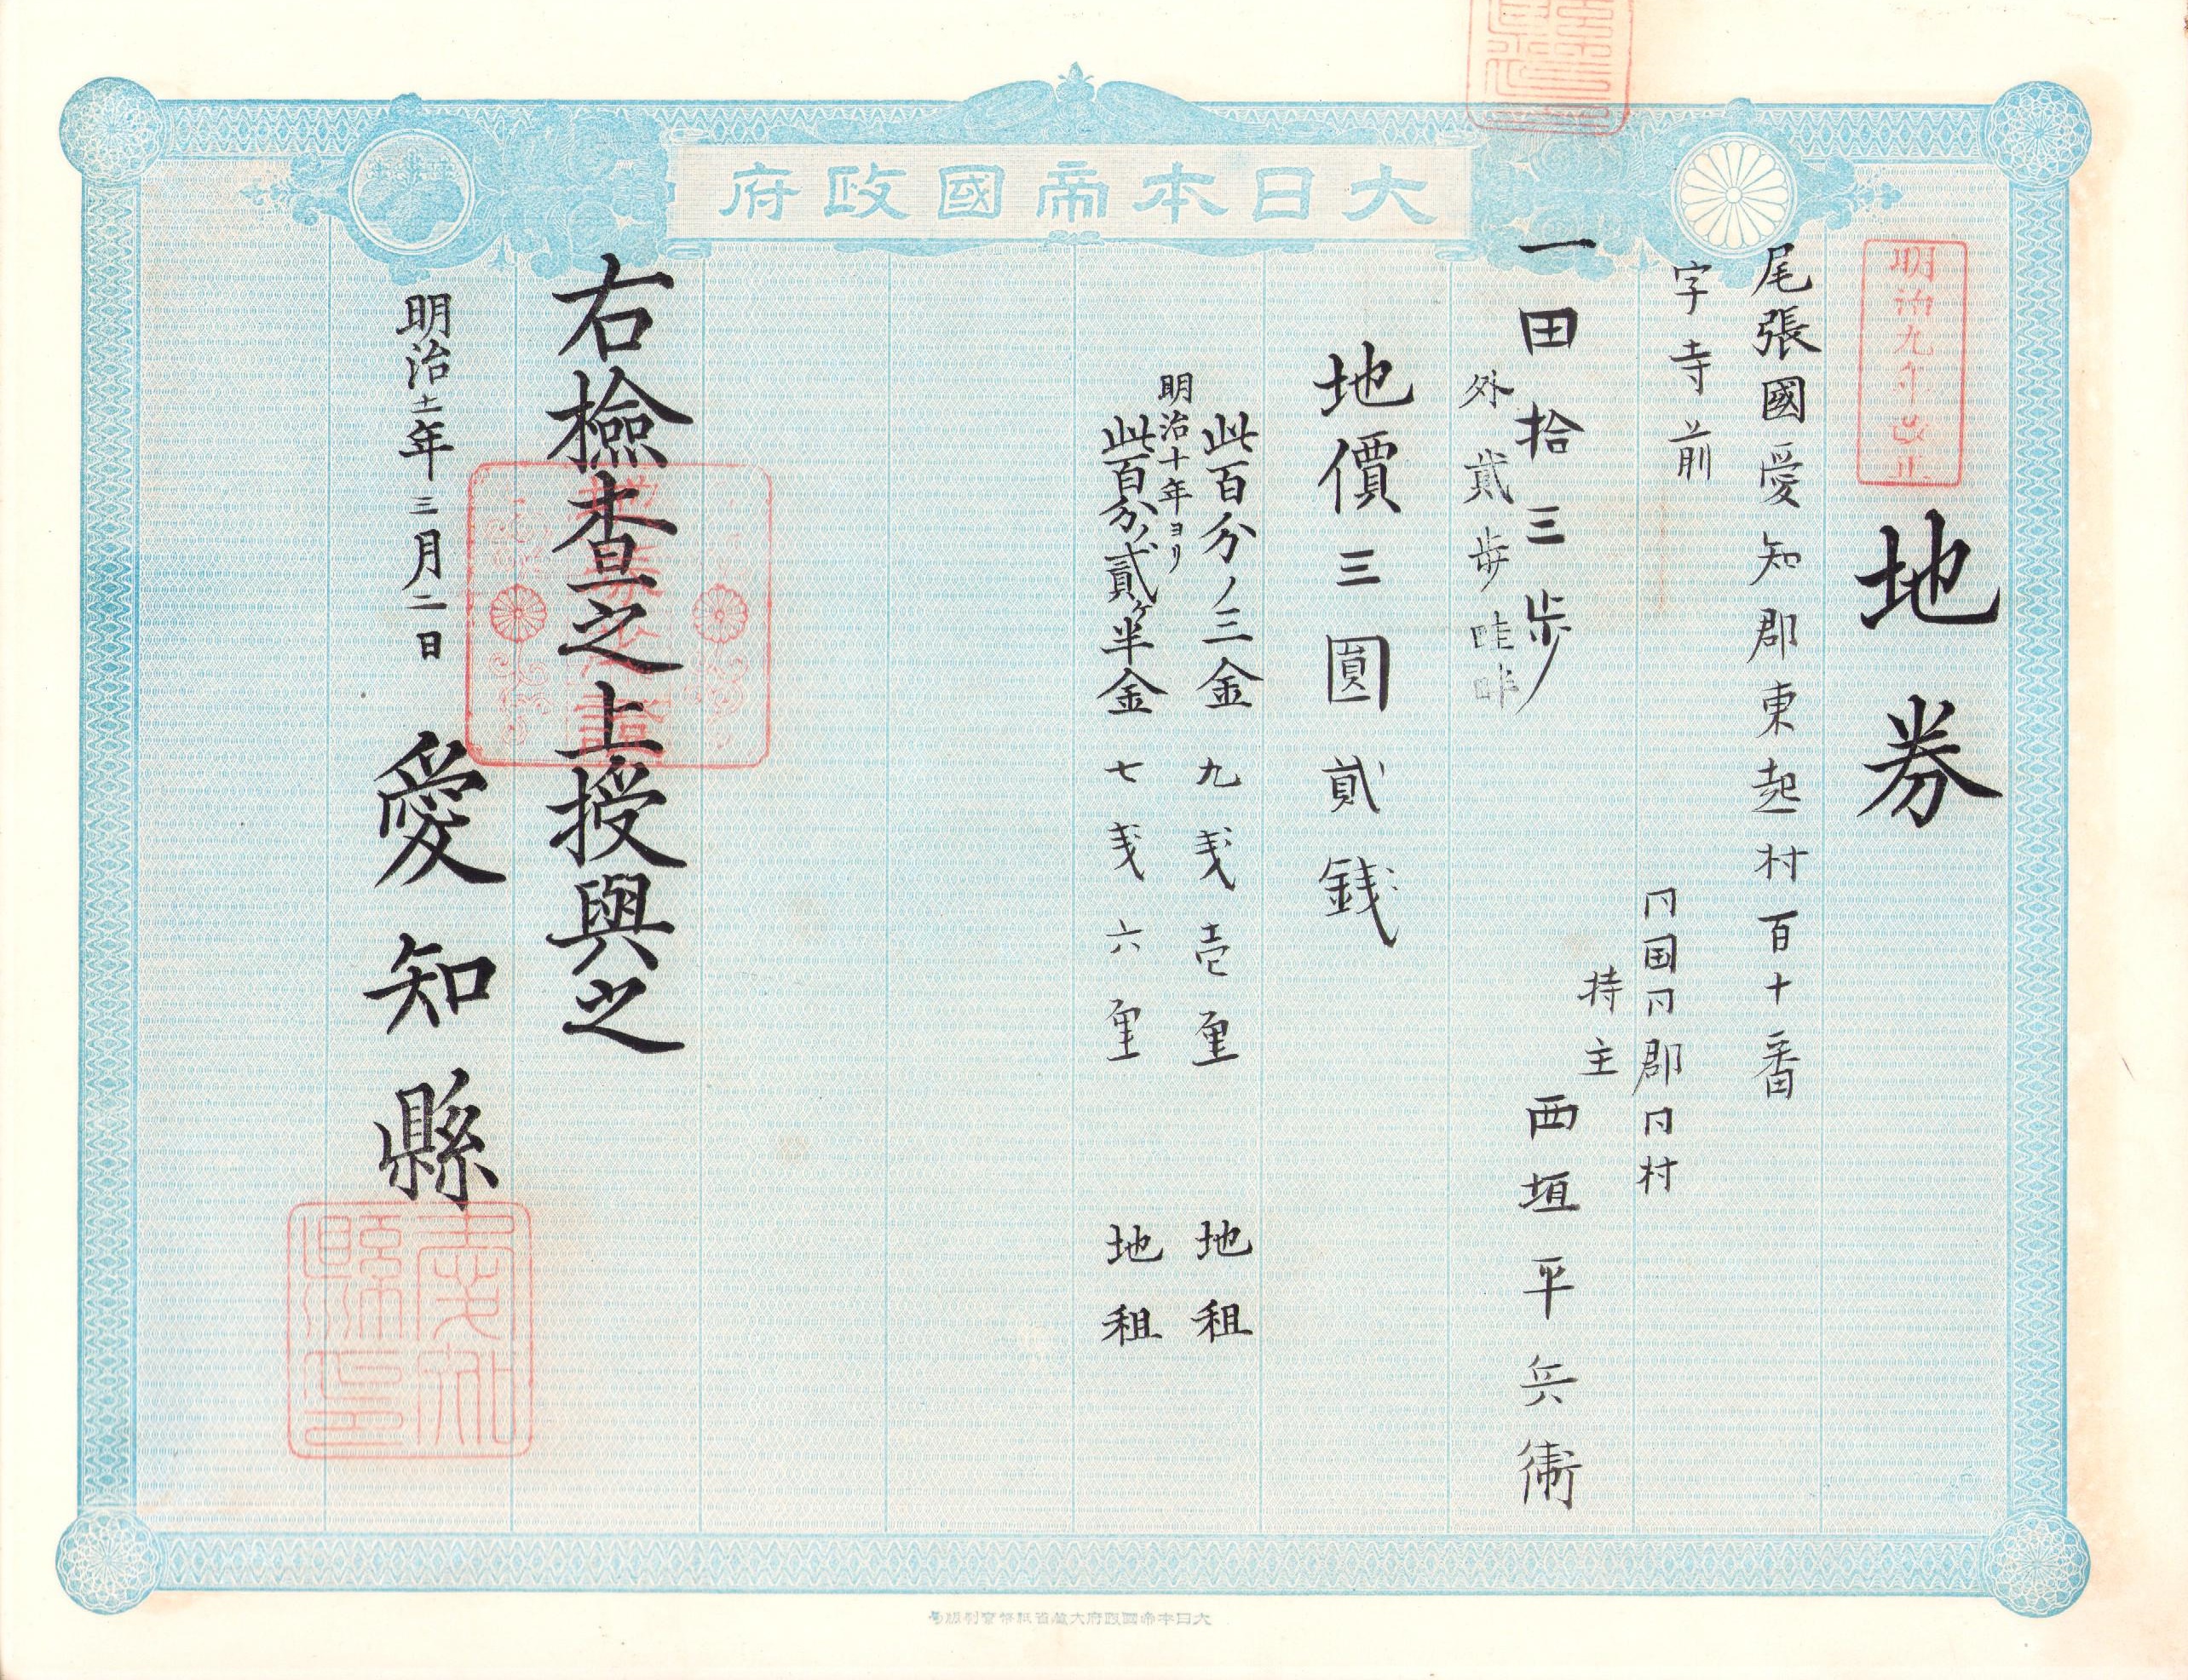 大日本帝國政府
明治九年改正
地券
尾張國愛知郡東起村百十番
字寺前
同国同郡同村
持主 西垣平兵衛
一田拾三歩
外貳歩畦畔
地價三圓貳銭
此百分ノ三金九戋壱厘 地租
明治十年ヨリ
此百分ノ貳ヶ半金七戋六厘 地租
右撿査之上授與之
明治十一年三月二日 愛知縣
愛知縣印
大日本帝國政府大蔵省紙幣寮製版局